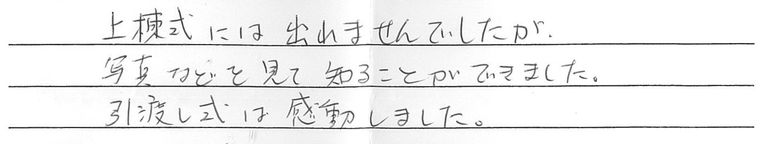 上棟式には出れませんでしたが、
写真などを見て知ることができました。
引渡し式は感動しました。